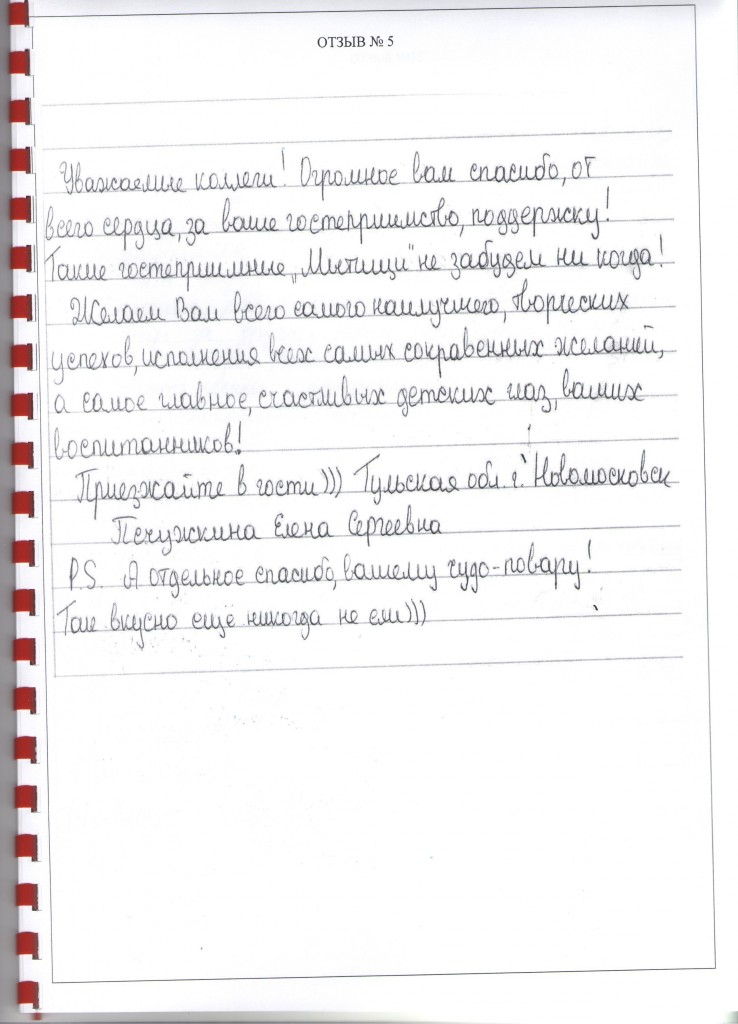 ОТЗЫВ № 5
Уважаемые коллеги! Огромное вам спасибо, от
всего сердца, за ваше гостеприимство, поддержку!
Такие гостеприимные „Мытищи" не забудем ни когда!
Желаем Вам всего самого наилучшего, творческих
успехов, исполнения всех самых сокравенных желаний,
а самое главное, счастливых детских глаз, ваших
воспитанников!
Приезжайте в гости))) Тульская обл. г. Новомосковск
Печужкина Елена Сергеевна
P.S. А отдельное спасибо, вашему чудо-повару!
Так вкусно ещё никогда не ели)))